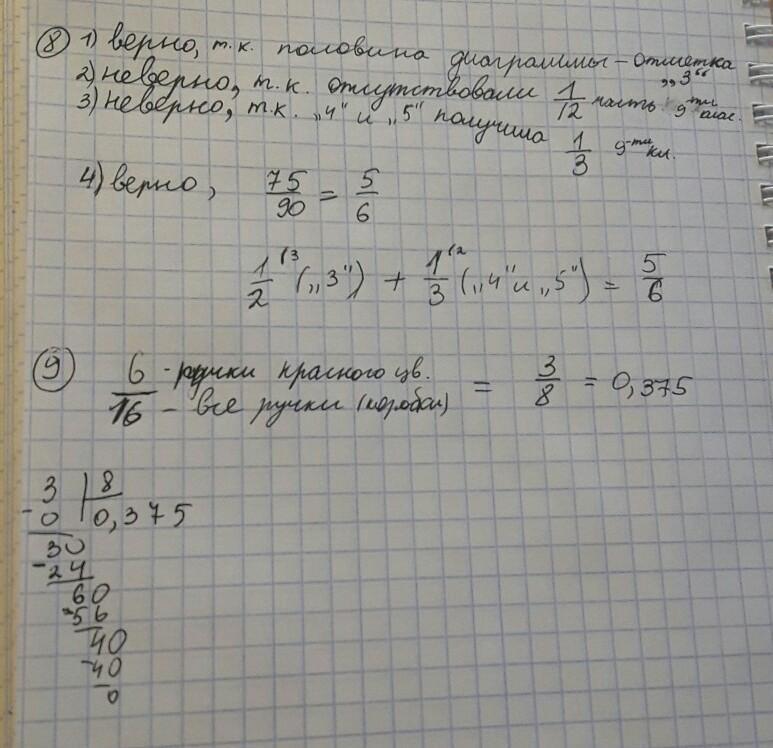 ⑧ 1) верно, т.к. половина диаграммы – отметка „3“
2) неверно, т.к. отсутствовали 1/12 часть 9-ти клас.
3) неверно, т.к. „4“ и „5“ получила 1/3 9-ти кл.
4) верно, 75/90 = 5/6
1/2 (3 („3“) + 1/3 (2 („4“ и „5“) = 5/6
⑨ 6 - ручки красного цв.
16 – все ручки (коробки) = 3/8 = 0,375
3 | 8
- 0 | 0,375
30
- 24
60
- 56
40
- 40
0